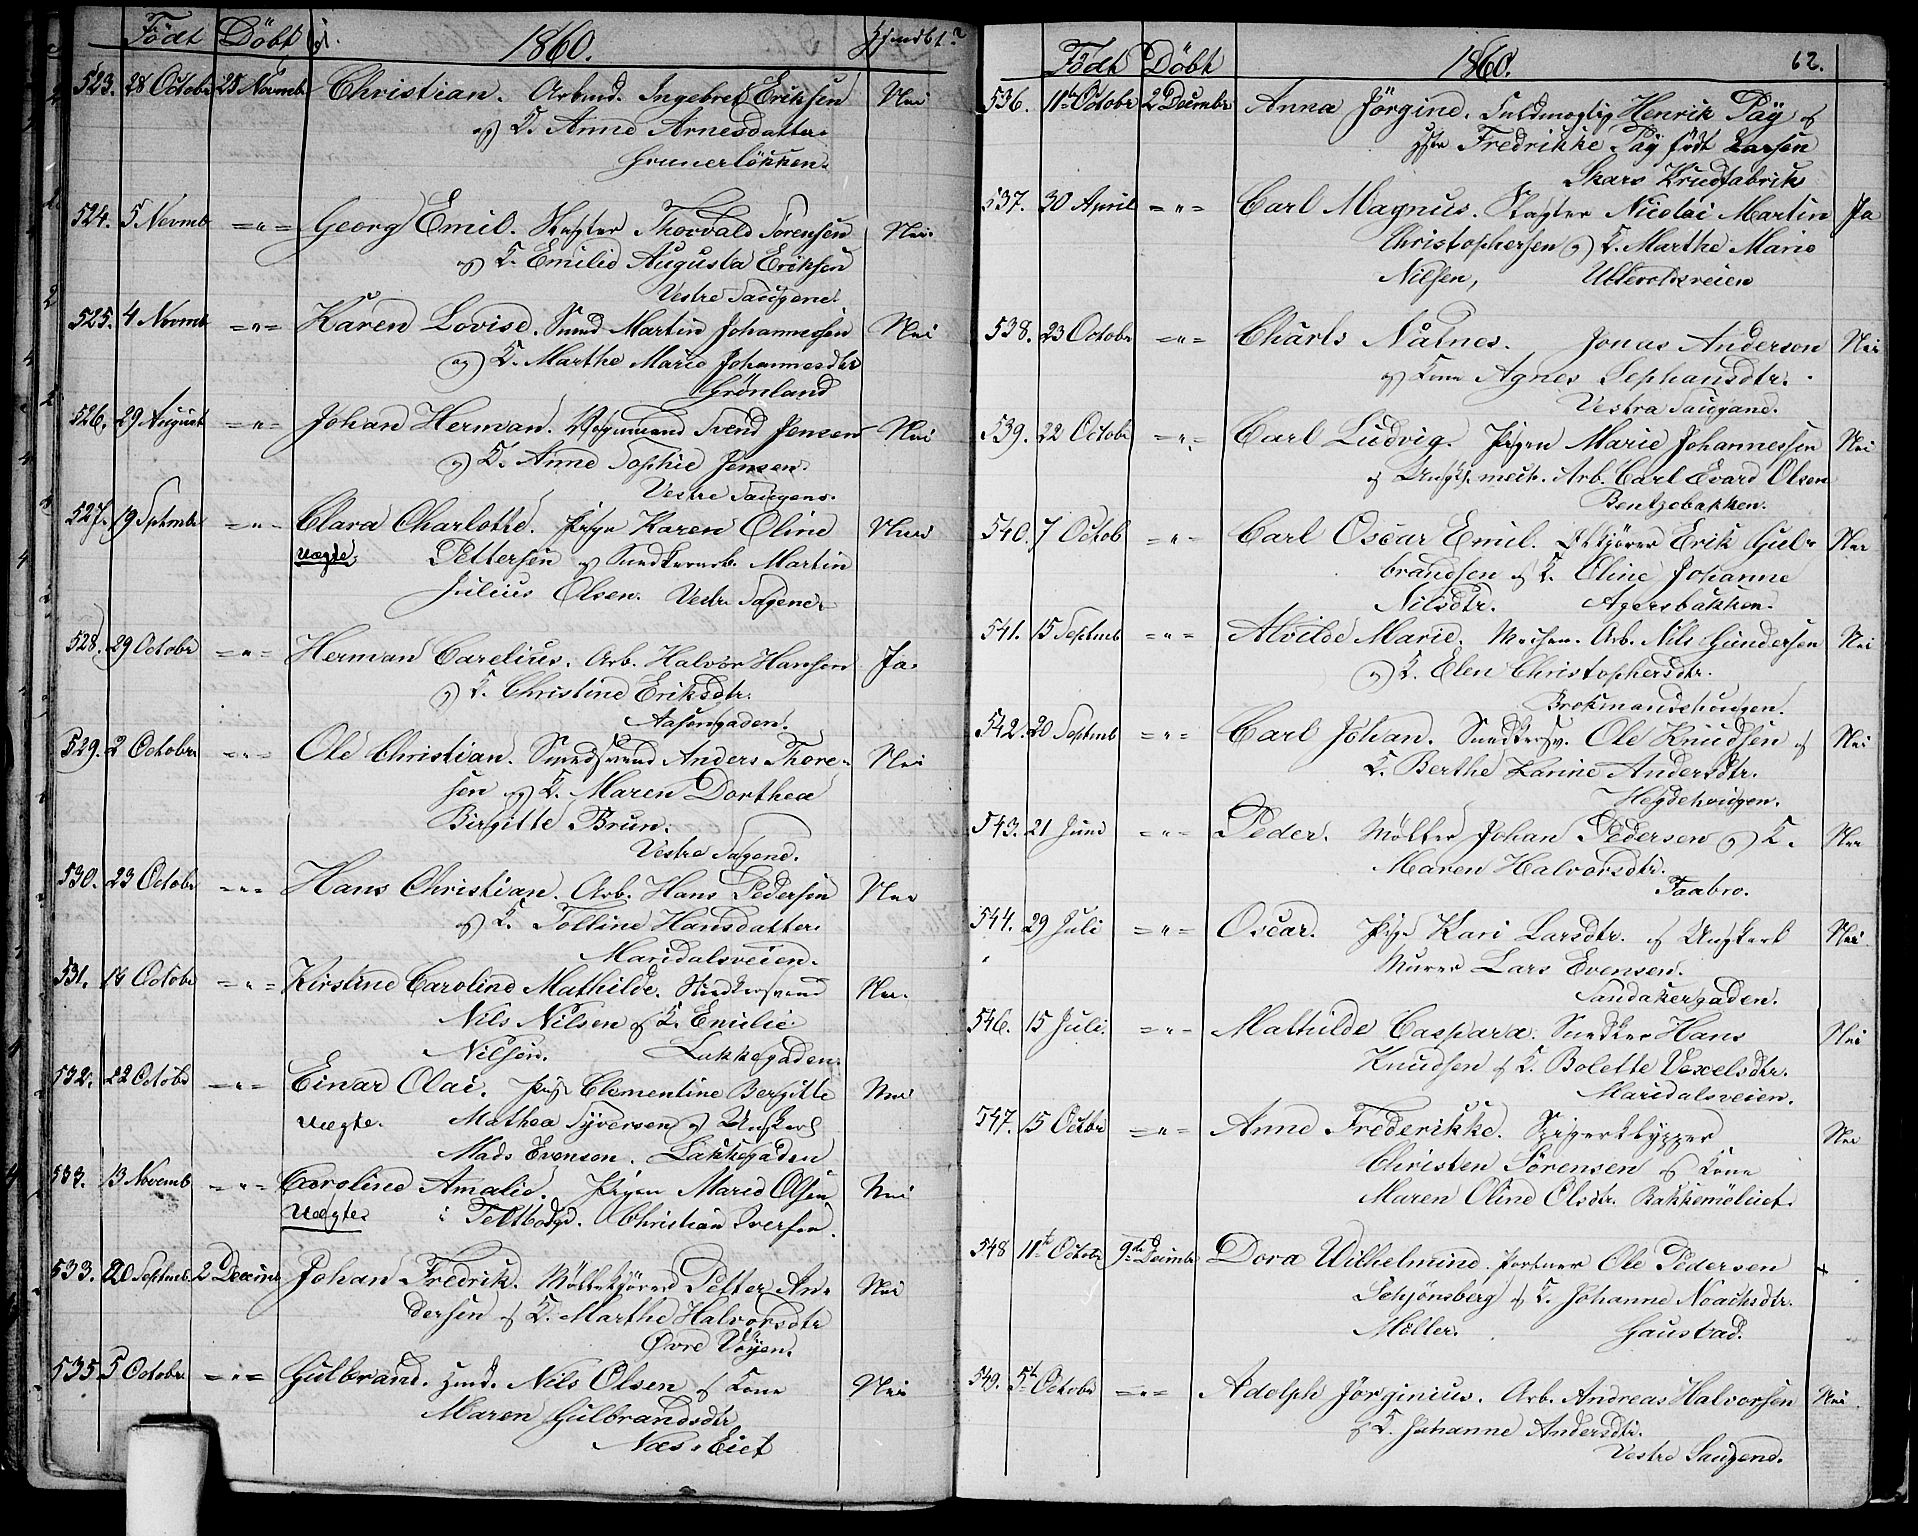 Födt Döbt 1860.
523. 28 Octobr 25 Novmb Christian. Arbmd. Ingebret Eriksen Nei
og K. Anne Arnesdatter.
Grunerlökken.
524. 5 Novmb = " = Georg Emil. Thorvald Sörensen Nei.
og K. Emilie Augusta Eriksen
Vestre Saugene.
525. 4 Novmb = " = Karen Lovise. Smed Martin Johannesen Nei
og K. Marthe Marie Johannesdtr
Grönland
526. 29 August = " = Johan Herman. Svend Jensen Nei
og K. Anne Sophie Jensen.
Vestre Saugene.
527. 19 Septmbr = " = Clara Charlotte. Pige Karen Oline Nei
uægte. Pettersen og Snedkerarb. Martin
Julius Olsen. Vestr Sagene.
528. 29 Octobr = " = Herman Carelius. Arb. Halvor Hansen Ja.
og K. Christine Eriksdtr.
Aasengaden.
529. 2 Octobr = " = Ole Christian. Smedsvend Anders Thore- Nei
sen og K. Maren Dorthea
Birgitte Brun.
Vestre Sagene.
530. 23 Octobr = " = Hans Christian. Arb. Hans Pedersen Nei
og K. Tolline Hansdatter.
Maridalsveien.
531. 18 Octobr = " = Kirstine Caroline Mathilde. Snedkersvend Nei.
Nils Nilsen og K. Emilie
Nilsen. Lakkegaden.
532. 22 Octobr = " = Einar Olai. Pige Clementine Bergitte Nei
uægte. Mathea Syversen og Ungkarl
Mads Evensen. Lakkegaden
533. 13 Novemb = " = Caroline Amalie. Pigen Marie Olsen Nei
Uægte. Christian Iversen.
533. 20 Septmb. 2 Decemb Johan Fredrik. Möllekjörer Petter An- Nei
dersen og K. Marthe Halvorsdtr
Øvre Vöyen.
535 5 October = " = Gulbrand. Nils Olsen og Kone Nei
Maren Gulbrandsdtr
Næs Eiet
Födt Döbt 1860. 62.
536. 11te Octobr 2 Decmbr Anna Jörgine. Fuldmægtig Henrik Päy og
Fredrikke Päy födt Larsen
Skars Krudfabrik
537. 30 April = " = Carl Magnus. Slagter Nicolai Martin Ja
Christophersen og K. Marthe Marie
Nilsen, Ullevoldsveien
538. 23 Octobr = " = Charls Natnes. Jonas Anderson Nei
og Kone Agnes Sephansdtr.
Vestra Saugane.
539. 22 Octobr = " = Carl Ludvig. Pigen Marie Johannessen Nei
og Ungk. mech. Arb. Carl Evard Olsen
Bentzebakken.
540. 7 Octob = " = Carl Oscar Emil. Erik Gul- Nei
brandsen og K. Oline Johanne
Nilsdtr. Agersbakken.
541. 15 Septmb = " = Alvilde Marie. Arb. Nils Gundersen Nei
og K. Elen Christophersdtr.
Brokmandshougen.
542. 20 Septmb = " = Carl Johan. Snedkersv. Ole Knudsen og Nei
K. Berthe Karine Andersdtr.
Hegdehougen.
543. 21 Juni = " = Peder. Möller Johan Pedersen og K. Nei
Maren Halvorsdtr.
Taabro.
544. 29 Juli = " = Oscar. Pige Kari Larsdtr. og Ungkarl Nei
Murer Lars Evensen.
Sandakergaden.
546. 15 Juli. = " = Mathilde Caspara. Snedker Hans Nei
Knudsen og K. Bolette Vexelsdtr.
Maridalsveien.
547. 15 Octbr = " = Anne Frederikke. Spigerklipper Nei
Christen Sörensen og Kone
Maren Oline Olsdtr. Bakkemöleiet.
548 11te Octobr 9de Decembr Dora Wilhelmine. Portner Ole Pedersen +
Schjönsberg og K. Johanne Noachsdtr.
Möller. Gaustad.
549. 5te Octobr = " = Adolph Jörginius. Arb. Andreas Halvorsen Nei.
og K. Johanne Andersdtr.
Vestre Saugene.